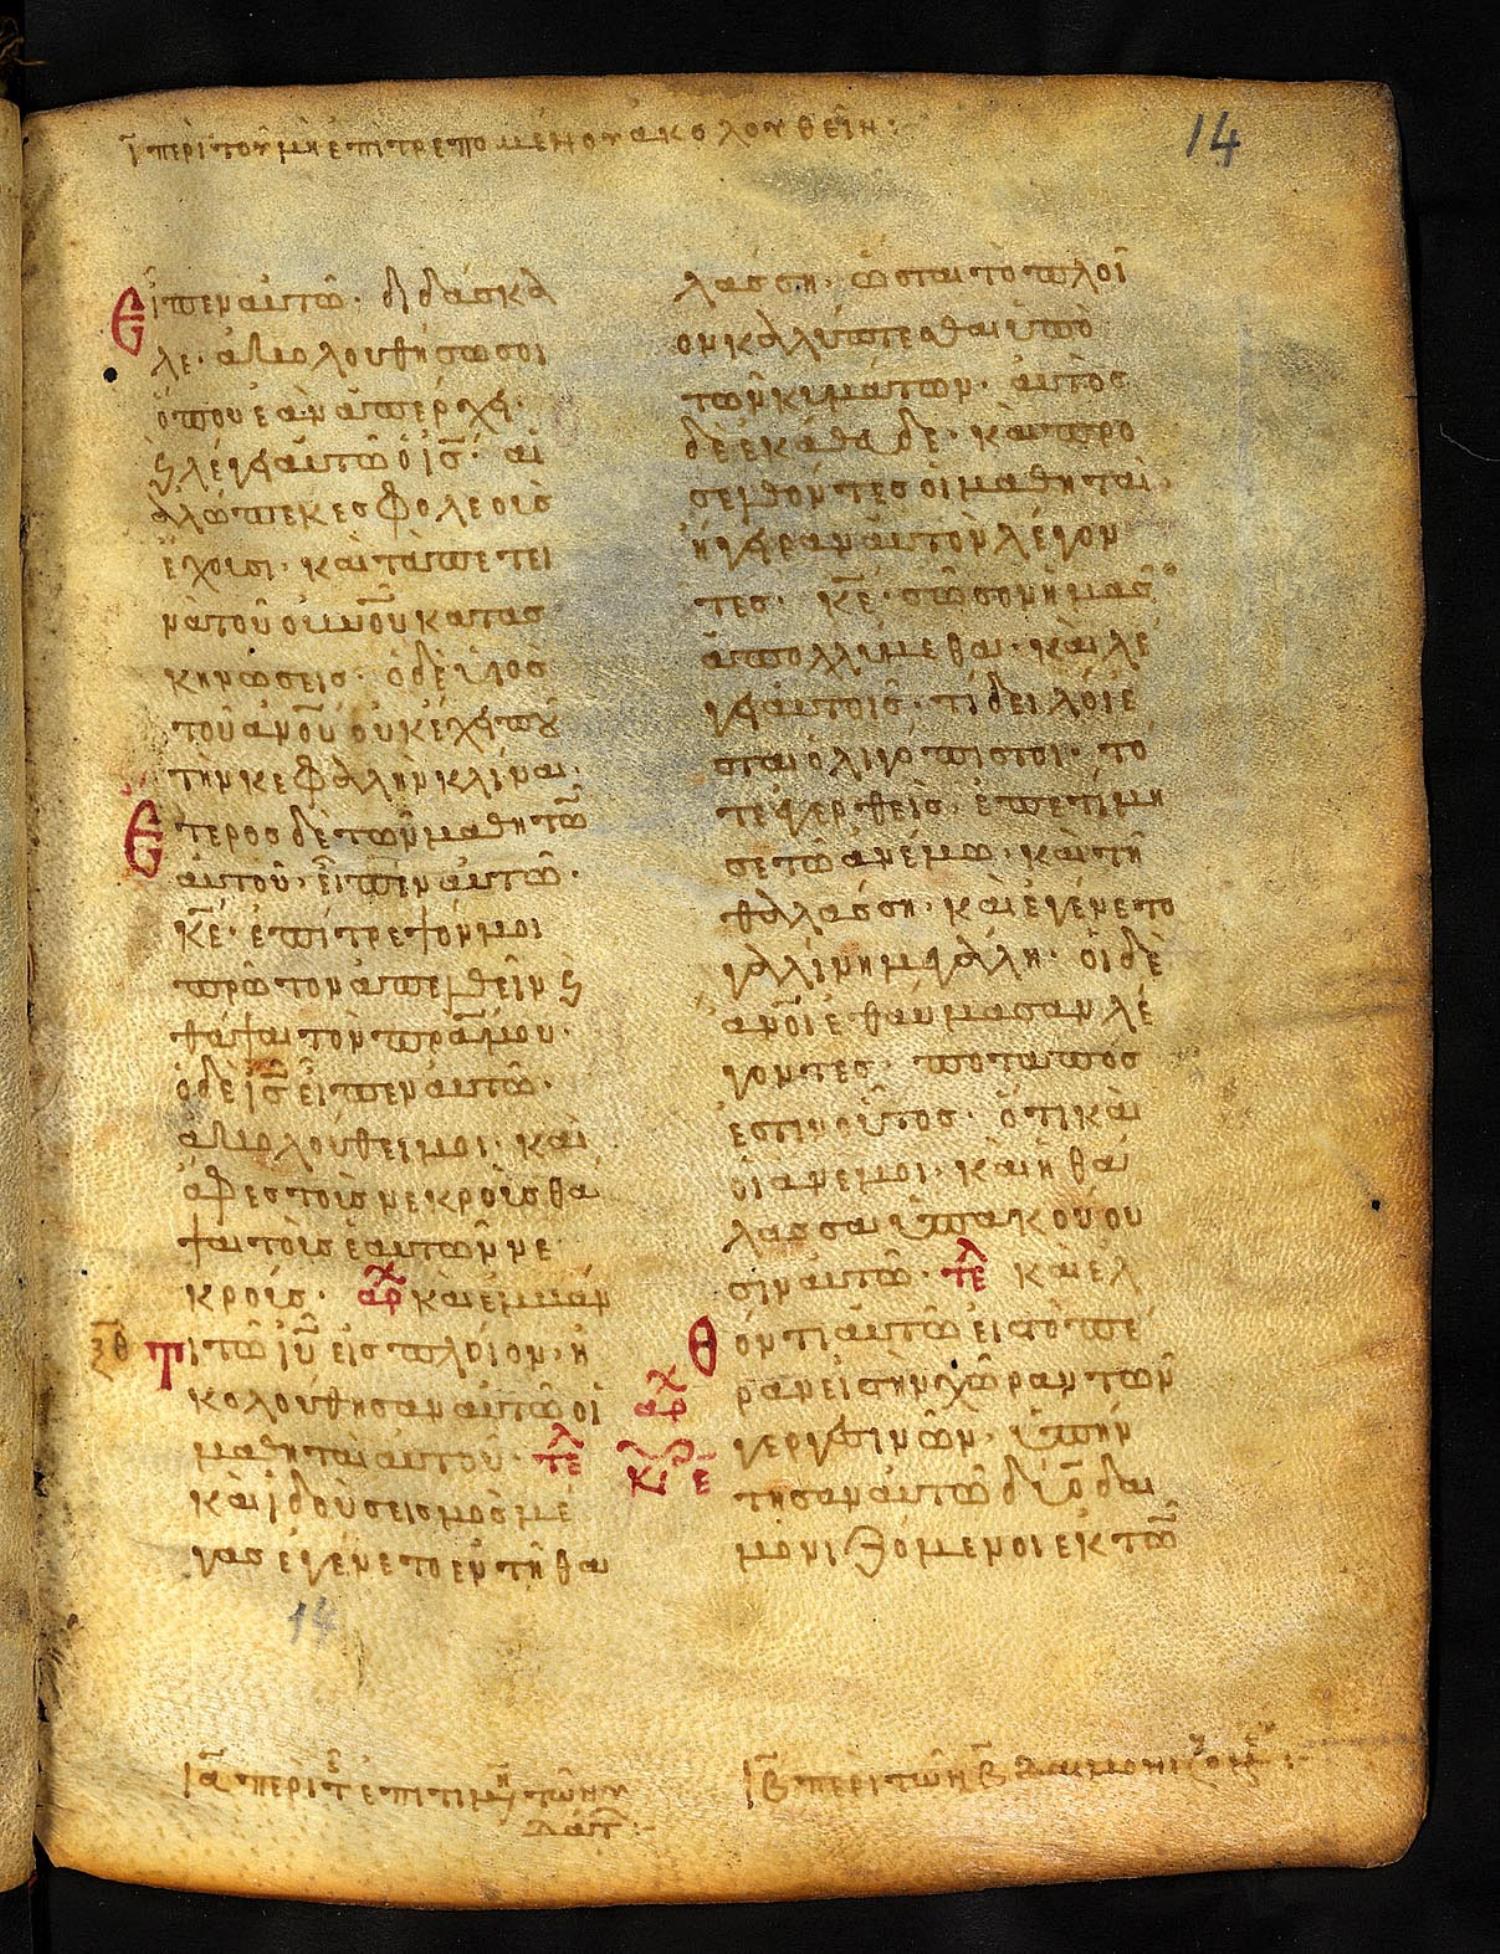 ῑ περὶ τοῦ μὴ ἐπιτρεπομένου ἀκολουθεῖν:
14
Εἶπεν αὐτῶ· διδάσκα
λε· ἀκολουθήσω σοι
ὅπου ἐὰν ἀπέρχη·
ϗ λέγει αὐτῶ ὁ ις̅· αἱ
ἀλώπεκες φολεοὺς
ἔχουσι· καὶ τὰ πετει
νὰ τοῦ οὐνοῦ κατασ
κηνώσεις· ὁ δὲ υἱὸς
τοῦ ἀνοῦ οὐκ ἔχει ποῦ
τὴν κεφαλὴν κλίναι·
Ἕτερος δὲ τῶν μαθητῶ
αὐτοῦ· εἶπεν αὐτῶ·
κε̅· ἐπίτρεψόν μοι
πρῶτον ἀπελθεῖν ϗ
θάψαι τὸν πρα̅ μου·
ὁ δὲ ις̅ εἶπεν αὐτῶ·
ἀκολούθει μοι· καὶ
ἄφες τοὺς νεκροὺς θά
ψαι τοὺς ἑαυτῶν νε
κρούς· αρχ καὶ ἐμβάν
ξθ̅ Τι τῶ ιυ̅ εἰς πλοῖον· ἠ
κολούθησαν αὐτῶ οἱ
μαθηταὶ αὐτοῦ· τελ
καὶ ἰδοὺ σεισμὸς μέ
γας ἐγένετο ἐν τῆ θα
λάσση· ὥσται τὸ πλοῖ
ον καλύπτεσθαι ὑπὸ
τῶν κυμάτων· αὐτὸς
δὲ ἐκάθευδε· καὶ προ
σελθόντες οἱ μαθηταὶ
ἤγειραν αὐτὸν λέγον
τες· κε̅· σῶσον ἡμᾶς
ἀπολλύμεθα· καὶ λέ
γει αὐτοῖς· τί δειλοί ἐ
σται ὀλιγόπιστοι· τό
τε ἐγερθεὶς· ἐπετίμη
σε τῶ ἀνέμω· καὶ τῆ
θαλάσση· καὶ ἐγένετο
γαλίνη μεγάλη· οἱ δὲ
ἀνοι̅ ἐθαύμασαν λέ
γοντες· ποταπός
ἐστιν οὗτος· ὅτι καὶ
οἱ ἄνεμοι· καὶ ἡ θά
λασσα ὑπακούου
σιν αὐτῶ· τελ καὶ ἐλ
Θόντι αὐτῶ εἰς τὸ πέ
αρχ ραν εἰς τὴν χώραν τῶν
κυ ε̅ γεργεσινῶν· ὑπήν
τησαν αὐτῶ δύο δαι
μονιζόμενοι ἐκ τῶ
14
ια̅ περὶ τ ἐπιτιμη τῶν υ
δάτ:
ιβ̅ περὶ τῶν β̅ δαιμονιζομ: